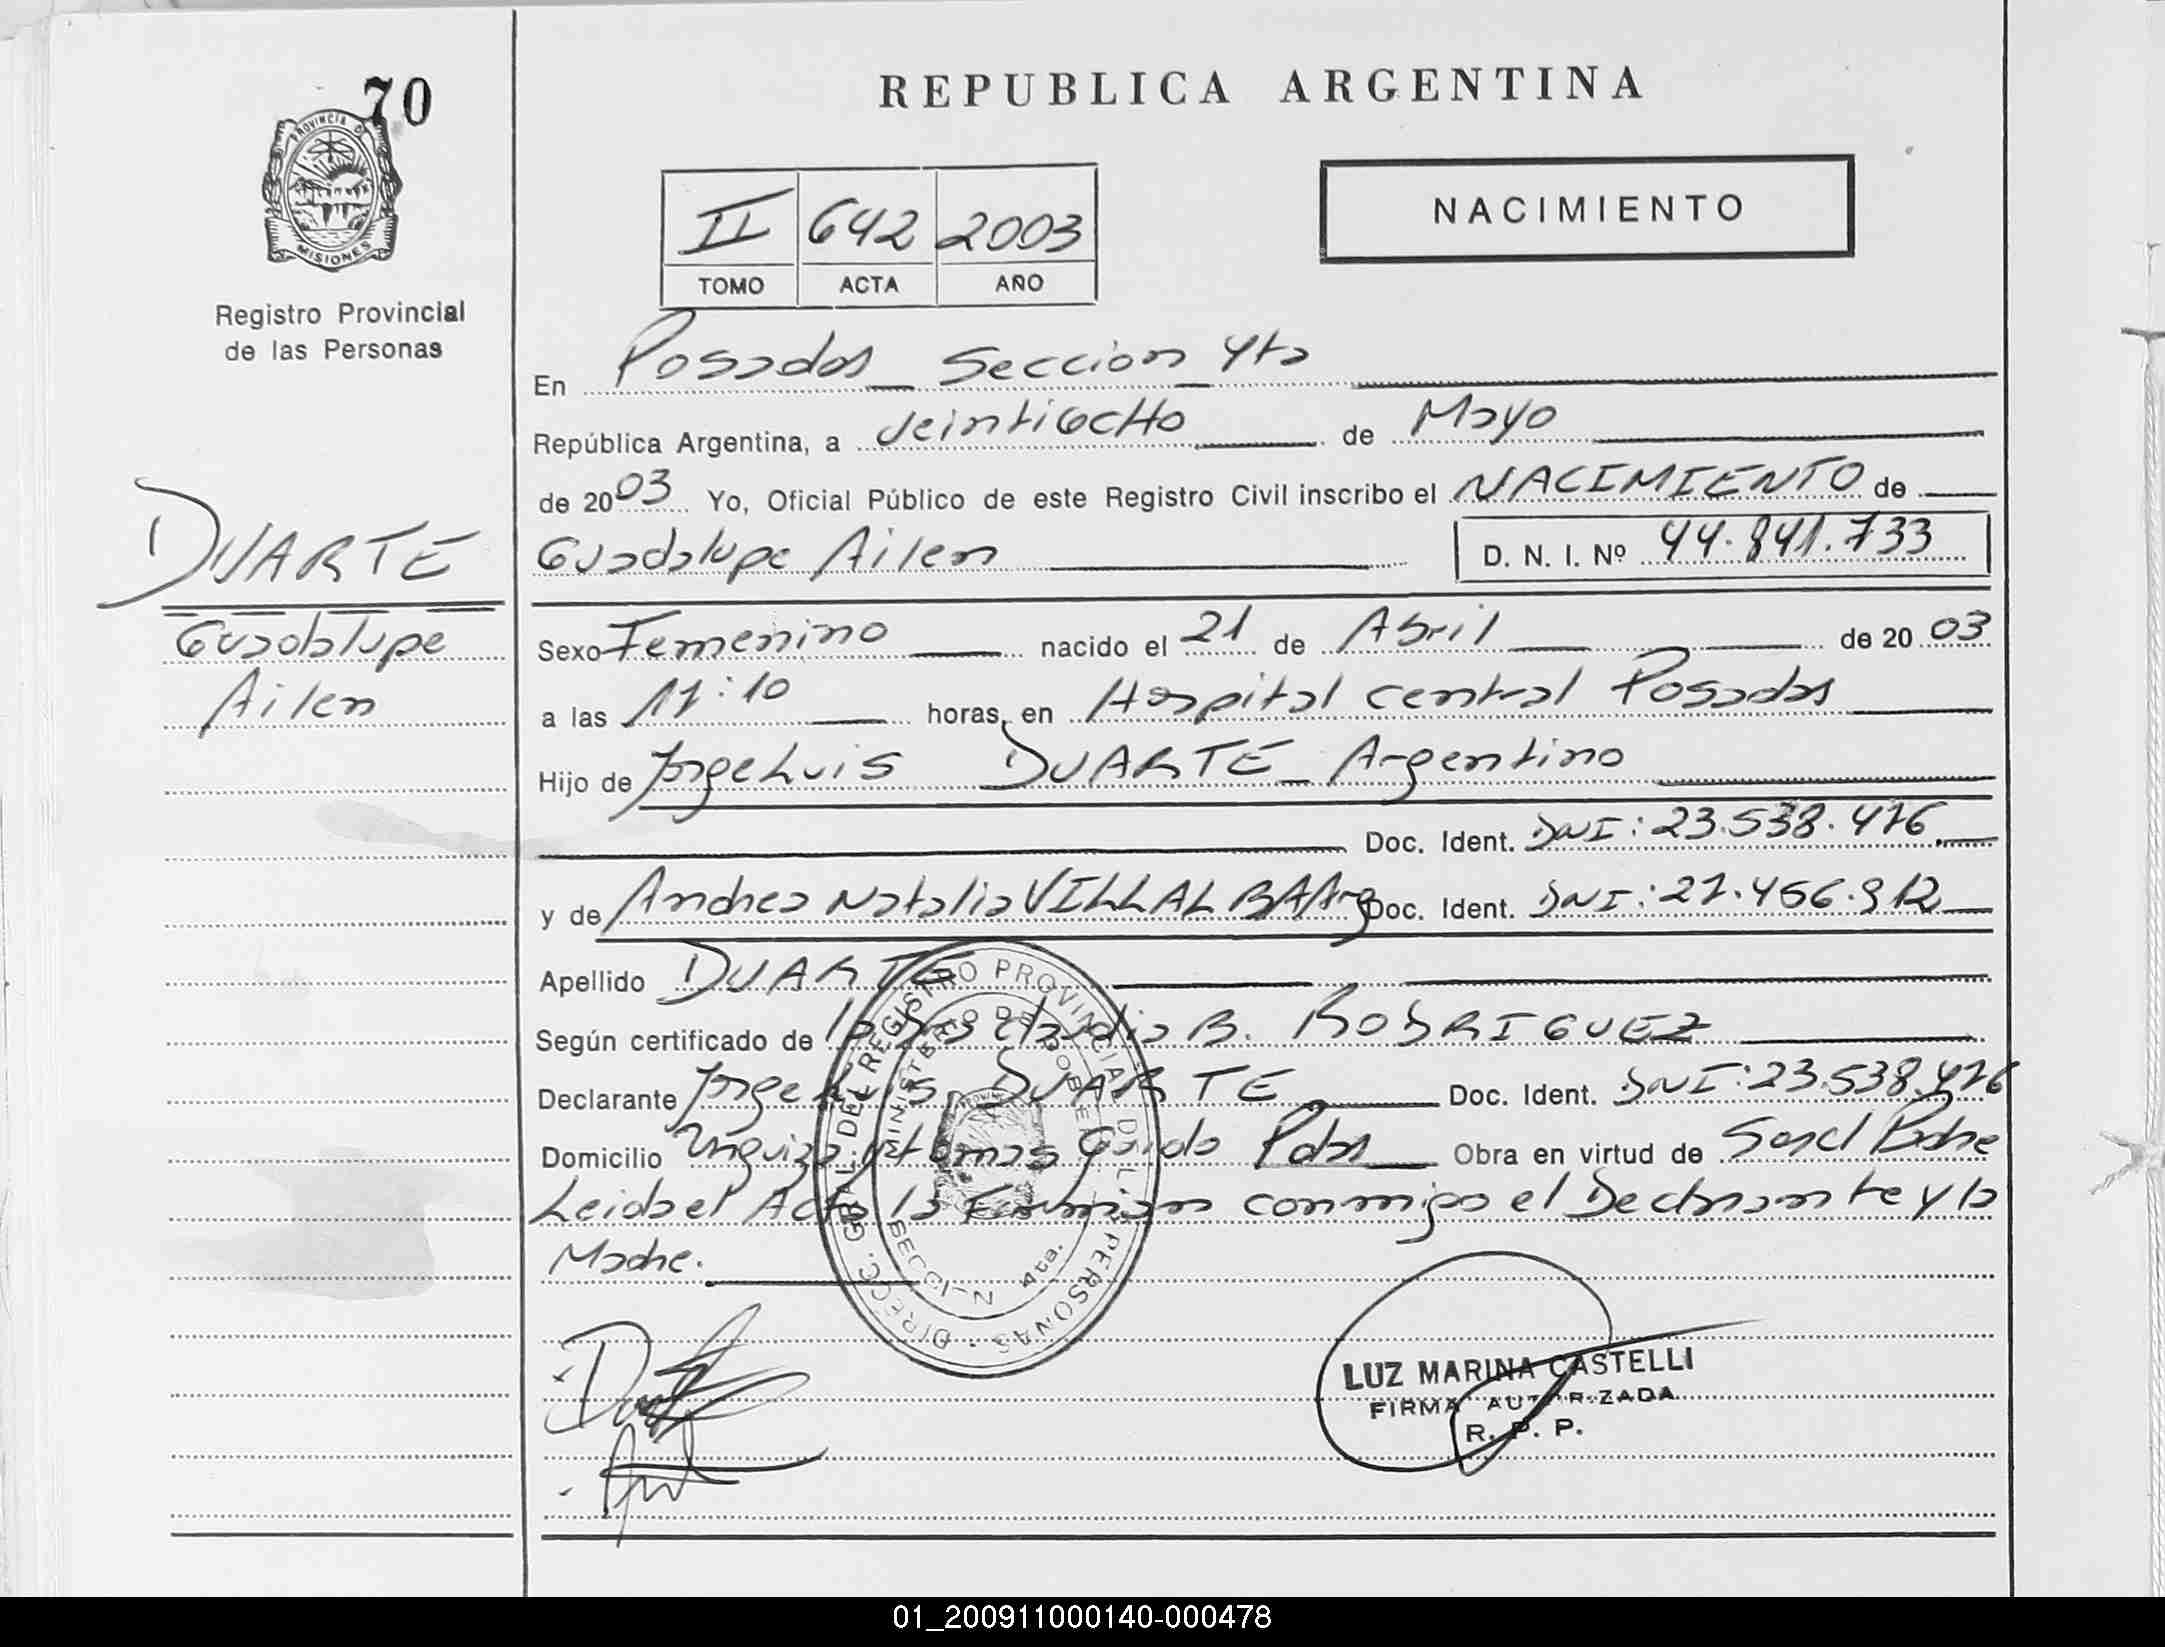 70
PROVINCIA D
MISIONES
Registro Provincial
de las Personas
DUARTE
Guadalupe
Ailen
REPUBLICA ARGENTINA
II 642 2003
TOMO ACTA AÑO
NACIMIENTO
En Posadas Seccion 4ta
República Argentina, a Veintiocho de Mayo
de 2003 Yo, Oficial Público de este Registro Civil inscribo el NACIMIENTO de
Guadalupe Ailen D. N. I. Nº 44.841.733
Sexo Femenino nacido el 21 de Abril de 2003
a las 11:10 horas, en Hospital central Posadas
Hijo de Jorge Luis DUARTE Argentino
Doc. Ident. DNI: 23.538.476
y de Andrea Natalia VILLALBA Arg Doc. Ident. DNI: 27.456.912
Apellido DUARTE
Según certificado de Claudia B. RODRIGUEZ
Declarante Jorge Luis DUARTE Doc. Ident. DNI: 23.538.476
Domicilio Urquiza y Tomas Guido Pdas Obra en virtud de Padre
Leida el Acta la Firman conmigo el Declarante y la
Madre.
DIRECC. GRAL. DEL REGISTRO PROVINCIAL DE LAS PERSONAS
MINISTERIO DE GOBIERNO
SECCION 4ta.
LUZ MARINA CASTELLI
FIRMA AUTORIZADA
R. P. P.
01_200911000140-000478